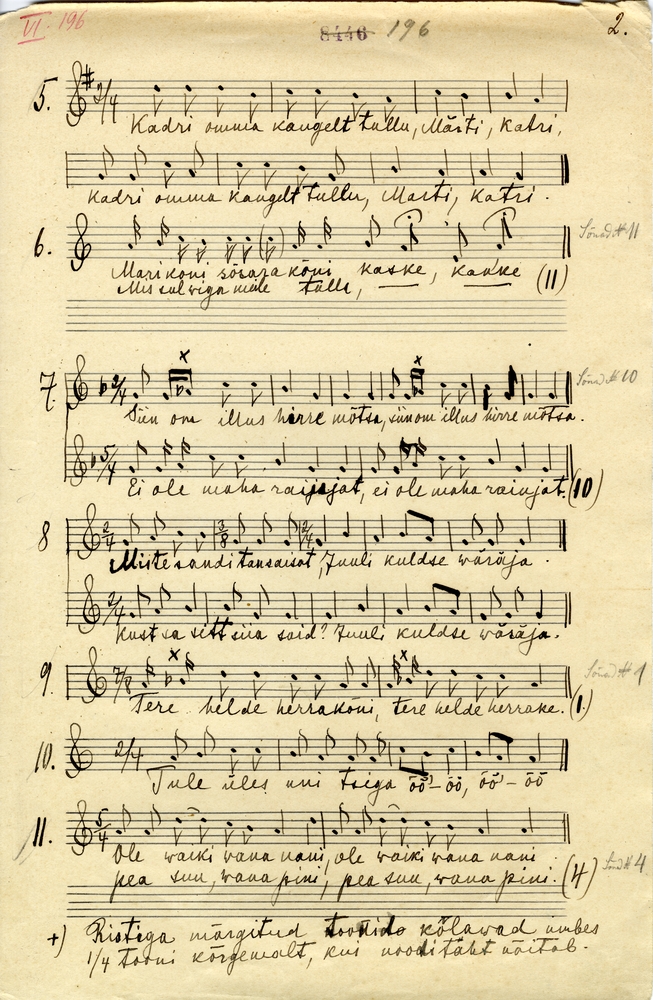 VI. 196
8446 196
2.
5. 2/4
Kadri omma kaugelt tullu, Märti, Katri,
Kadri omma kaugelt tullu, Marti, Katri.
6.
Sõnad # 11
Mari koni sõsara kõni kaske, kanke (11)
tulle,
7. 2/4
Sõnad # 10
Siin om illus hirre mõtsa, siin om illus hirre mõtsa.
5/4
Ei ole maha raiujat, ei ole maha raiujat. (10)
8 2/4 3/8 2/4
Miite sandi tansaisat, Juuli kuldse wäräja.
2/4
Kust sa sitt siia said? Juuli kuldse wäräja.
9. 7/8
Sõnad # 1
Tere helde herrakõni, tere helde herrake. (1.)
10. 2/4
Tule üles uni tsiga öö-öö, öö-öö
11. 5/4
Ole waiki wana nani, ole waiki wana nani
pea suu, wana pini, pea suu, wana pini. (4)
Sõnad # 4
+) Ristiga märgitud toonid kõlawad umbes
1/4 tooni kõrgemalt, kui nooditäht näitab.